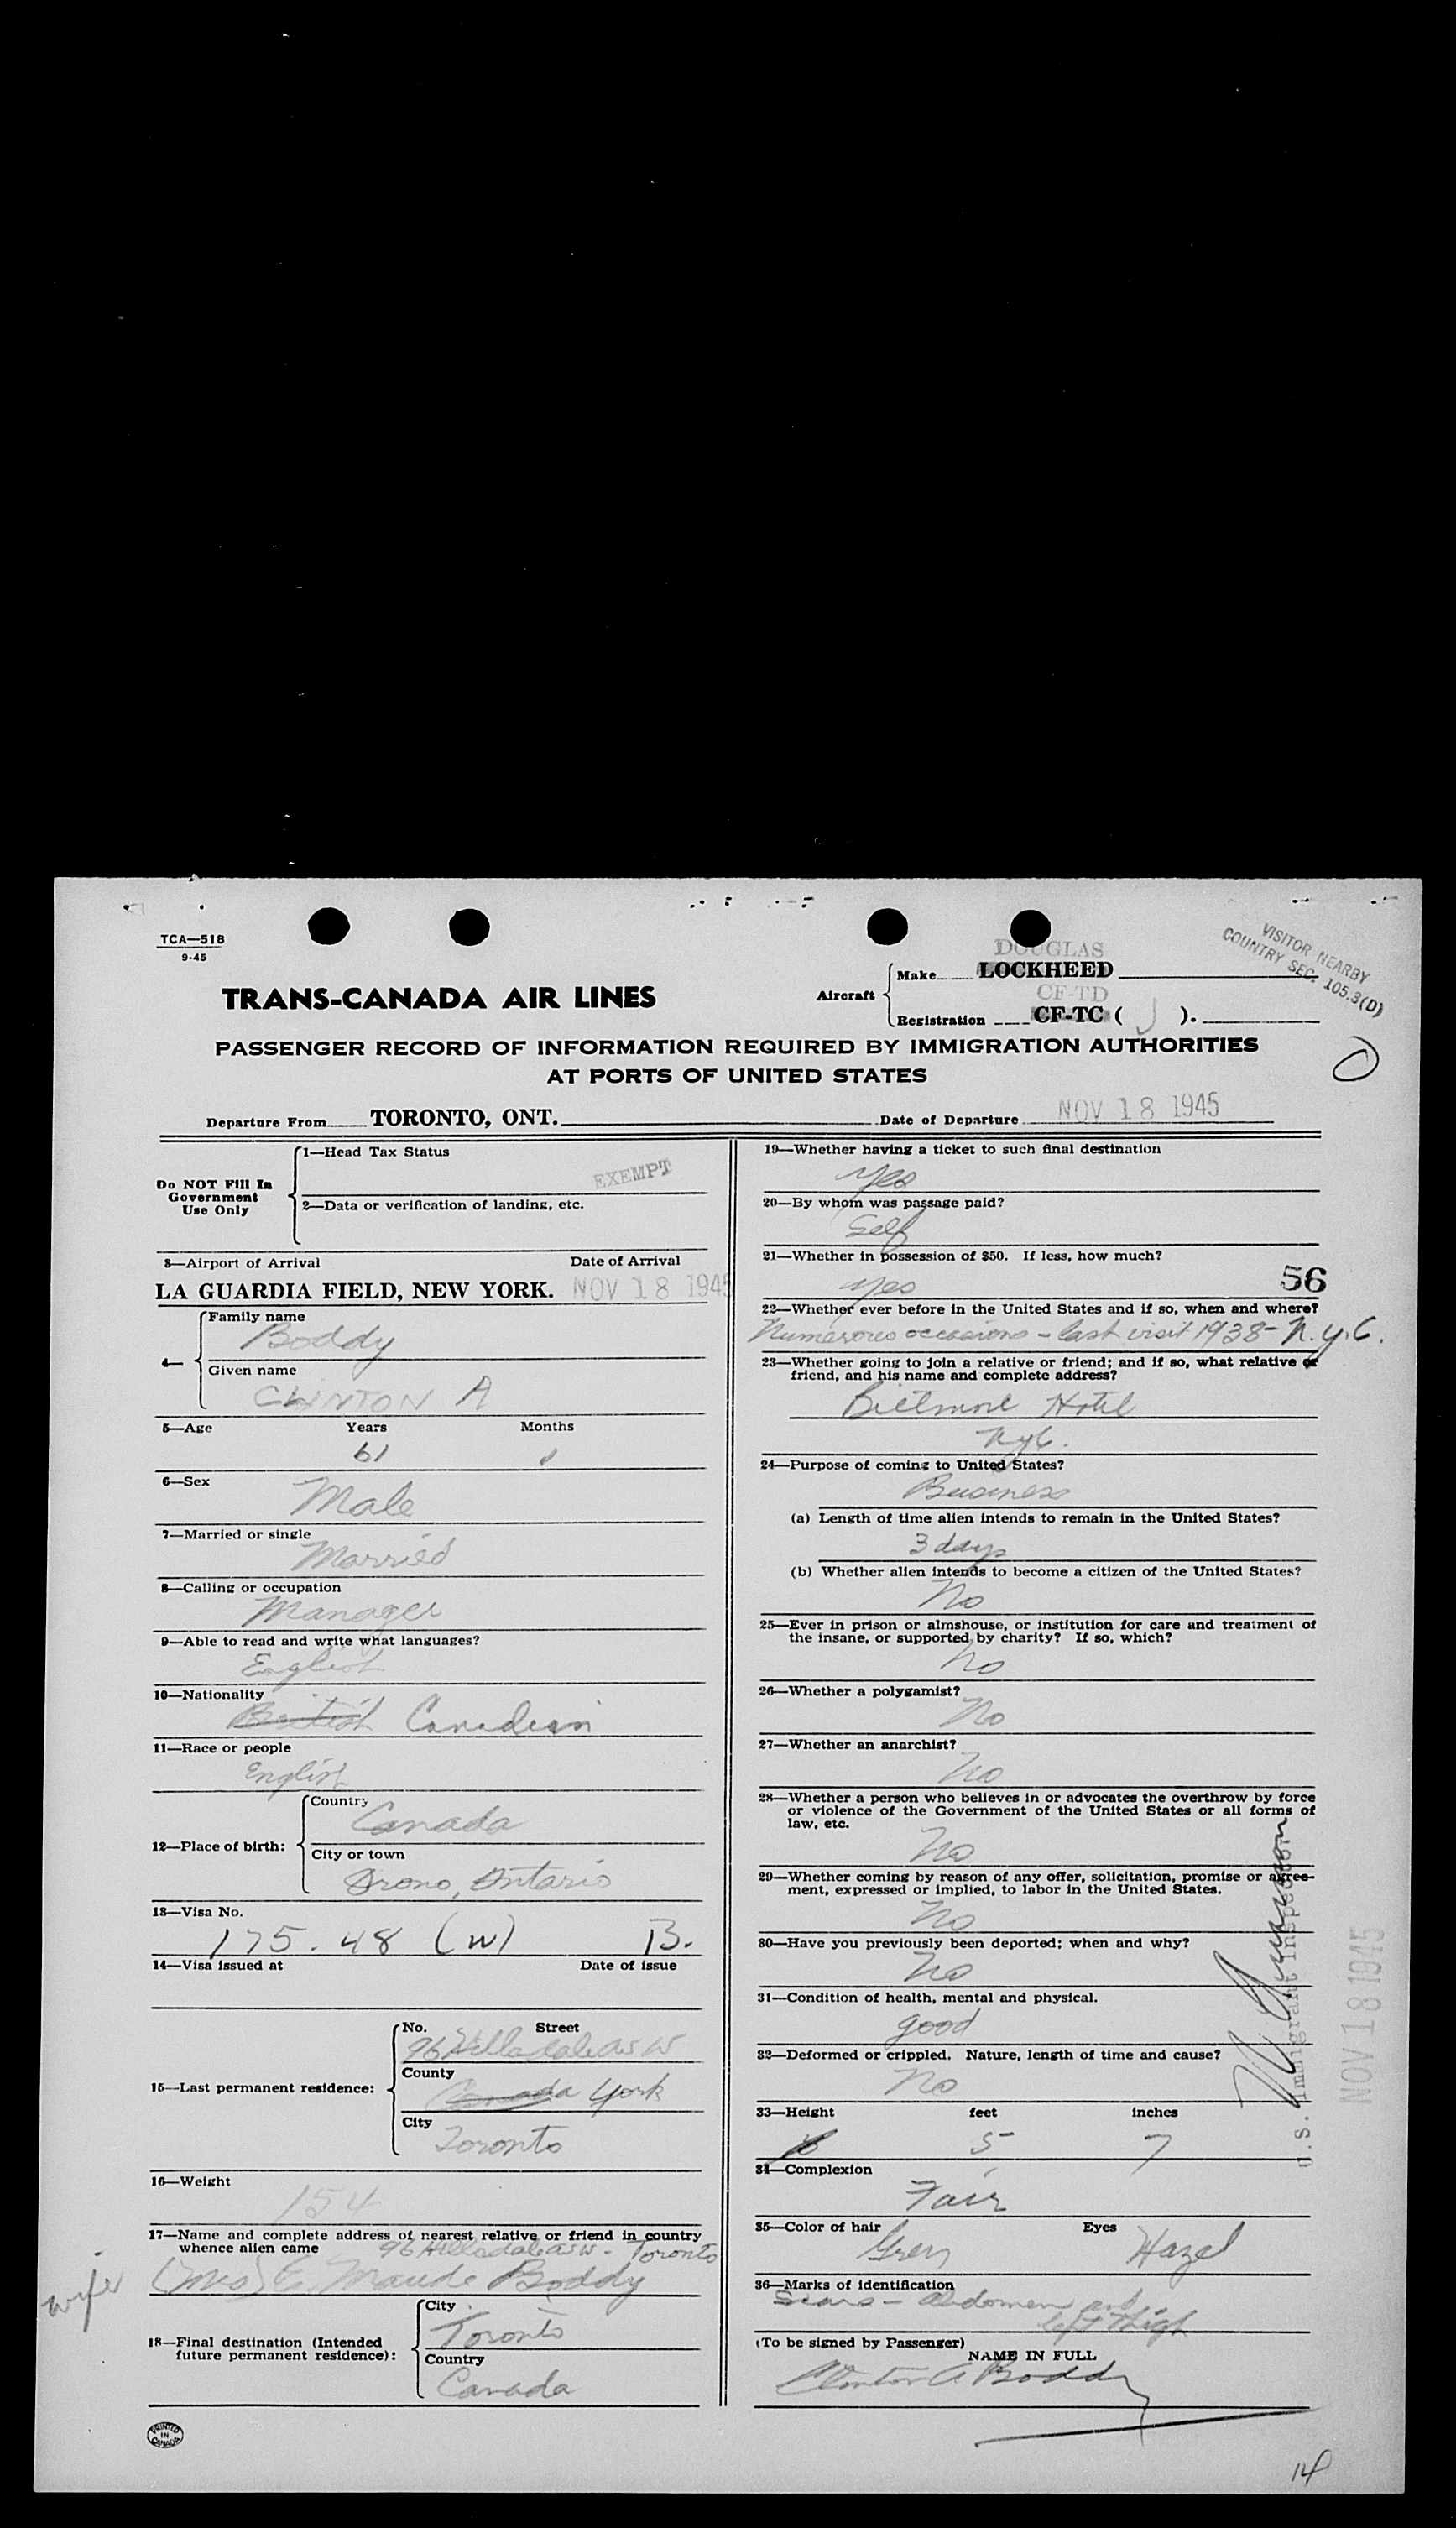 TCA—518
9-45
VISITOR NEARBY
COUNTRY SEC. 105.3(D)
TRANS-CANADA AIR LINES
DOUGLAS
Aircraft Make LOCKHEED
CF-TD
Registration CF-TC ( J ).
PASSENGER RECORD OF INFORMATION REQUIRED BY IMMIGRATION AUTHORITIES
AT PORTS OF UNITED STATES
Departure From TORONTO, ONT. Date of Departure NOV 18 1945
Do NOT Fill In
Government
Use Only
1—Head Tax Status
EXEMPT
2—Data or verification of landing, etc.
3—Airport of Arrival Date of Arrival
LA GUARDIA FIELD, NEW YORK. NOV 18 1945
4—
Family name
Boddy
Given name
CLINTON A
5—Age Years Months
61
6—Sex
Male
7—Married or single
Married
8—Calling or occupation
Manager
9—Able to read and write what languages?
English
10—Nationality
British Canadian
11—Race or people
English
12—Place of birth:
Country
Canada
City or town
Orono, Ontario
13—Visa No.
175.48 (W) B.
14—Visa issued at Date of issue
15—Last permanent residence:
No. Street
96 Hillsdale Av W
County
Canada York
City
Toronto
16—Weight
154
17—Name and complete address of nearest relative or friend in country
whence alien came 96 Hillsdale Av W - Toronto
wife (Mrs) E. Maude Boddy
18—Final destination (Intended
future permanent residence):
City
Toronto
Country
Canada
PRINTED
IN
CANADA
19—Whether having a ticket to such final destination
Yes
20—By whom was passage paid?
Self
21—Whether in possession of $50. If less, how much?
Yes
56
22—Whether ever before in the United States and if so, when and where?
Numerous occasions - last visit 1938 - N.Y.C.
23—Whether going to join a relative or friend; and if so, what relative or
friend, and his name and complete address?
Biltmore Hotel
NYC.
24—Purpose of coming to United States?
Business
(a) Length of time alien intends to remain in the United States?
3 days
(b) Whether alien intends to become a citizen of the United States?
No
25—Ever in prison or almshouse, or institution for care and treatment of
the insane, or supported by charity? If so, which?
No
26—Whether a polygamist?
No
27—Whether an anarchist?
No
28—Whether a person who believes in or advocates the overthrow by force
or violence of the Government of the United States or all forms of
law, etc.
No
29—Whether coming by reason of any offer, solicitation, promise or agree-
ment, expressed or implied, to labor in the United States.
No
30—Have you previously been deported; when and why?
No
31—Condition of health, mental and physical.
good
32—Deformed or crippled. Nature, length of time and cause?
No
33—Height feet inches
5 7
34—Complexion
Fair
35—Color of hair Eyes
Grey Hazel
36—Marks of identification
Scars - Abdomen and
left thigh
(To be signed by Passenger)
NAME IN FULL
Clinton A Boddy
U.S. Immigrant Inspector
NOV 18 1945
14